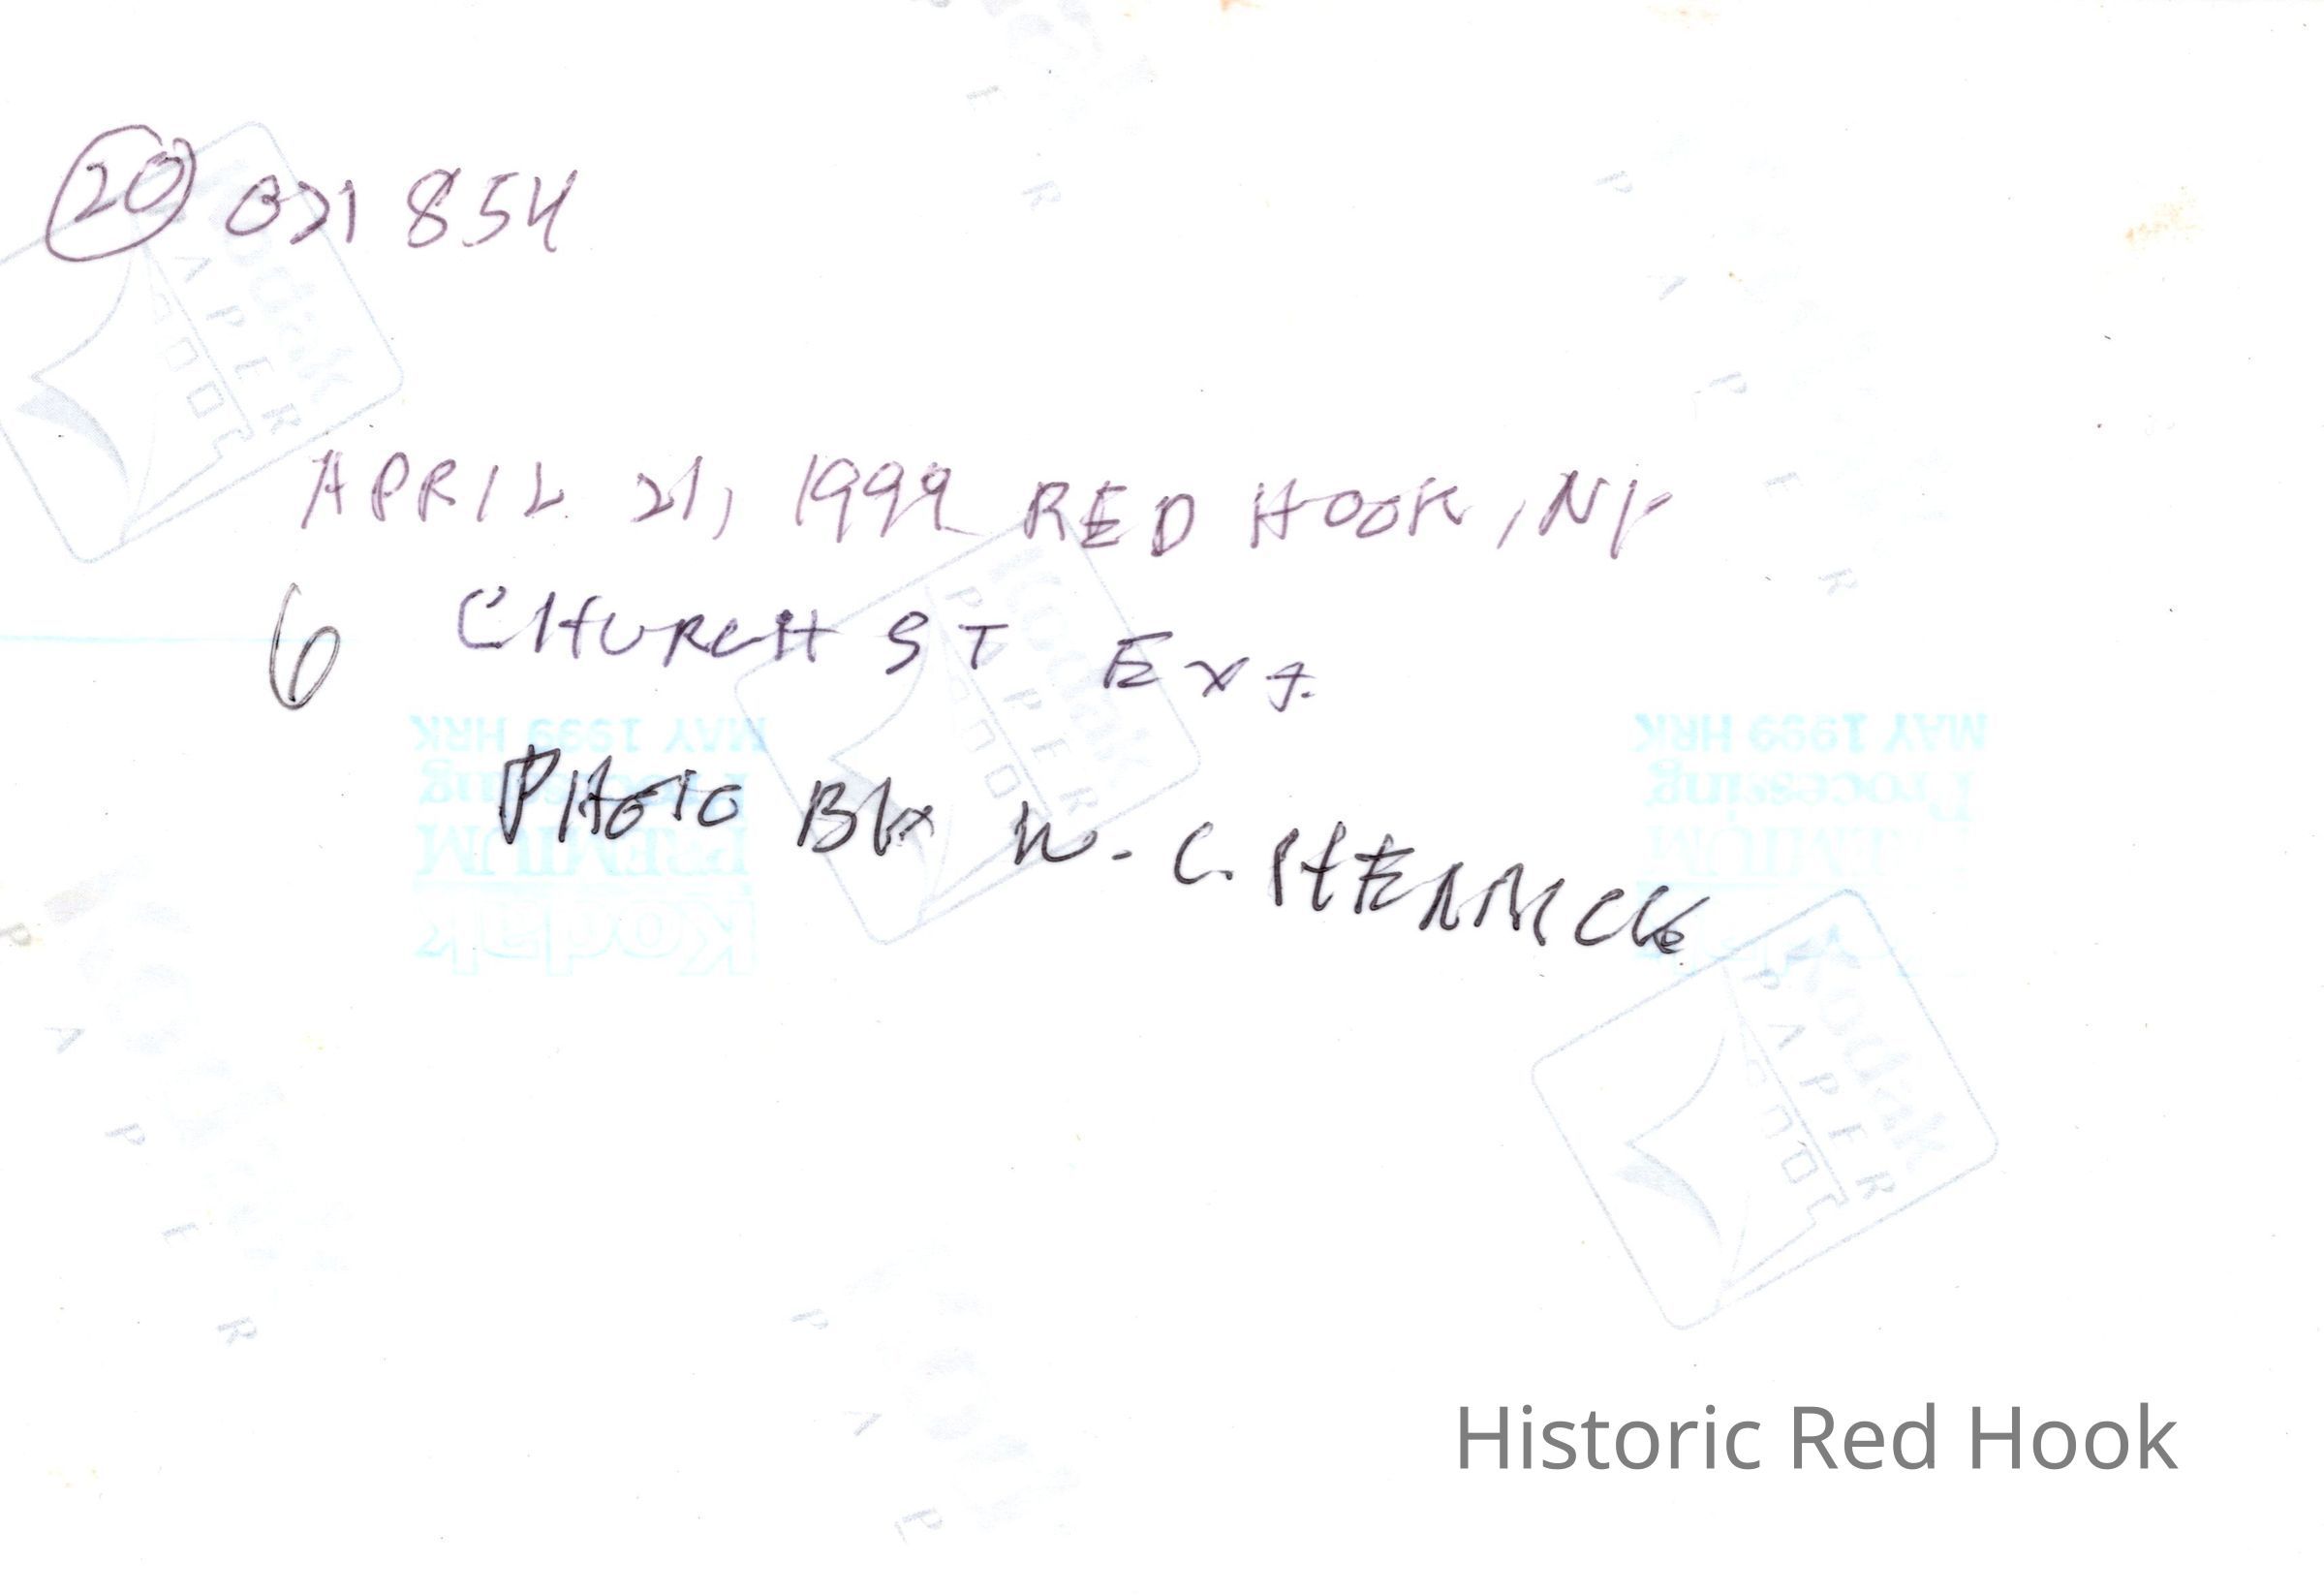 20 031 854
APRIL 21, 1999 RED HOOK, NY
6 CHURCH ST EXT.
MAY 1999 HRK
Processing
PREMIUM
Kodak
MAY 1999 HRK
Processing
PHOTO BY W. C.
Kodak
PAPER
Kodak
PAPER
Kodak
PAPER
Historic Red Hook